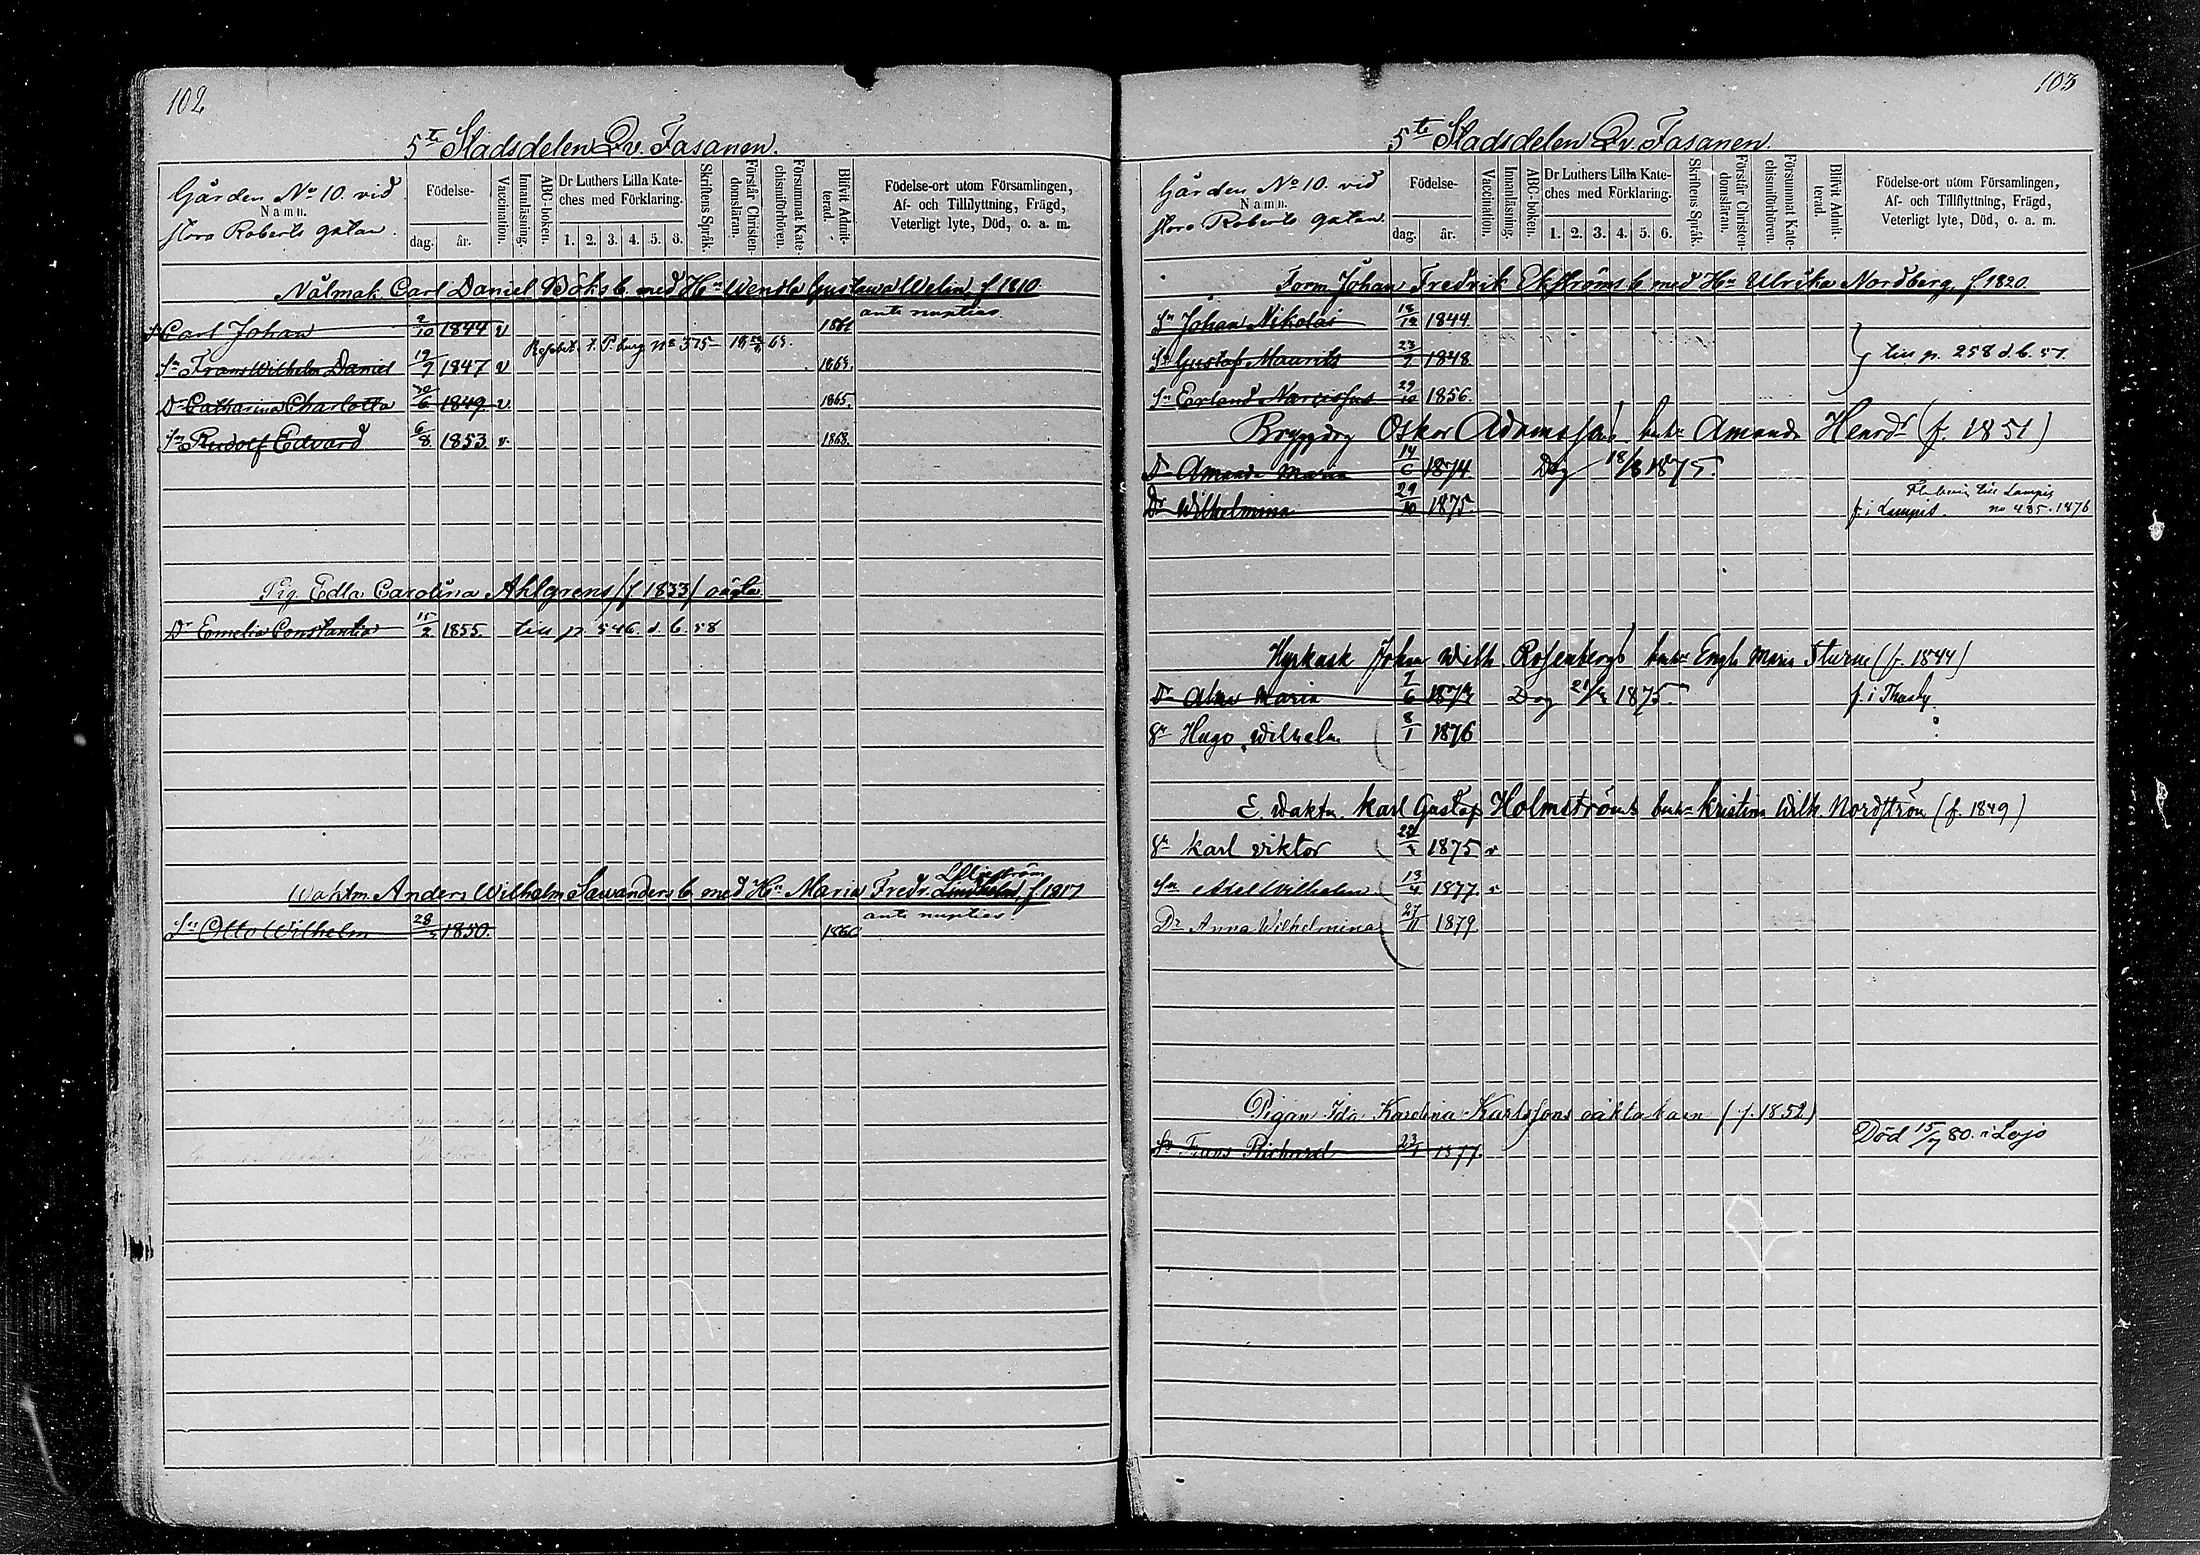 102
5te Stadsdelen Qv. Fasanen.
Gården No 10. vid
Namn.
stora Roberts gatan.
Födelse-
dag. år.
Vaccination.
Innanläsning.
ABC-boken.
Dr Luthers Lilla Kate-
ches med Förklaring.
1. 2. 3. 4. 5. 6.
Skriftens Språk.
Förstår Christen-
domsläran.
Försummat Kate-
chismiförhören.
Blifvit Admit-
terad.
Födelse-ort utom Församlingen,
Af- och Tillflyttning, Frägd,
Veterligt lyte, Död, o. a. m.
Nålmak. Carl Daniel Böks b. med Hn Wendla Gustava Welin, f 1810
ante nuptias
Sn Carl Johan 2/10 1844 v 1861
Resebet. t. P.burg No 375 63.
Sn Frans Wilhelm Daniel 19/7 1847 v 1863.
Dr Catharina Charlotta 30/6 1849 v. 1865.
Sn Rudolf Edvard 6/8 1853 v. 1868.
Pig. Edla Carolina Ahlgrens (f 1833) oägta
Dr Emelia Constantia 15/2 1855. till p. 546. d. b. 58
Wahtm. Anders Wilhelm Sawanders b. med Hn Maria Fredr. f 1817
ante nuptias
Sn Otto Wilhelm 28/3 1850. 1866
103
5te Stadsdelen Qv. Fasanen.
Gården No 10. vid
Namn.
stora Roberts gatan.
Födelse-
dag. år.
Vaccination.
Innanläsning.
ABC-boken.
Dr Luthers Lilla Kate-
ches med Förklaring.
1. 2. 3. 4. 5. 6.
Skriftens Språk.
Förstår Christen-
domsläran.
Försummat Kate-
chismiförhören.
Blifvit Admit-
terad.
Födelse-ort utom Församlingen,
Af- och Tillflyttning, Frägd,
Veterligt lyte, Död, o. a. m.
Form. Johan Fredrik Ekströms b. med Hn Ulrika Nordberg, f 1820.
Sn Johan Nikolai 18/12 1844
Sn Gustaf Maurits 23/9 1848. till p. 258 d. b. 57.
Sn Erland Narcissus 29/10 1856.
Bryggdrg Oskar Adamssons Amanda Henrdr (f. 1851)
Dr Amanda Maria 14/6 1874. Dog 18/8 1875.
till Lampis
Dr Wilhelmina 29/10 1875. f. i Lampis. no 485. 1876
Hyrkusk Johan Wilh. Rosenbergs Engla Maria Sturne (f. 1844)
Dr Alma Maria 7/6 1872 Dog 1875. f. i Thusby
Sn Hugo Wilhelm 8/1 1876
E. waktm. Karl Gustaf Holmströms Kristina Wilh. Nordström (f. 1849)
Sn Karl Viktor 1875 v
Sn Axel Wilhelm 13/4 1877. v
Dr Anna Wilhelmina 27/11 1879
Pigan Ida Karolina Karlssons oäkta barn (f. 1852)
Sn Frans Richard 23/1 1877. Död 15/7 80. i Lojo